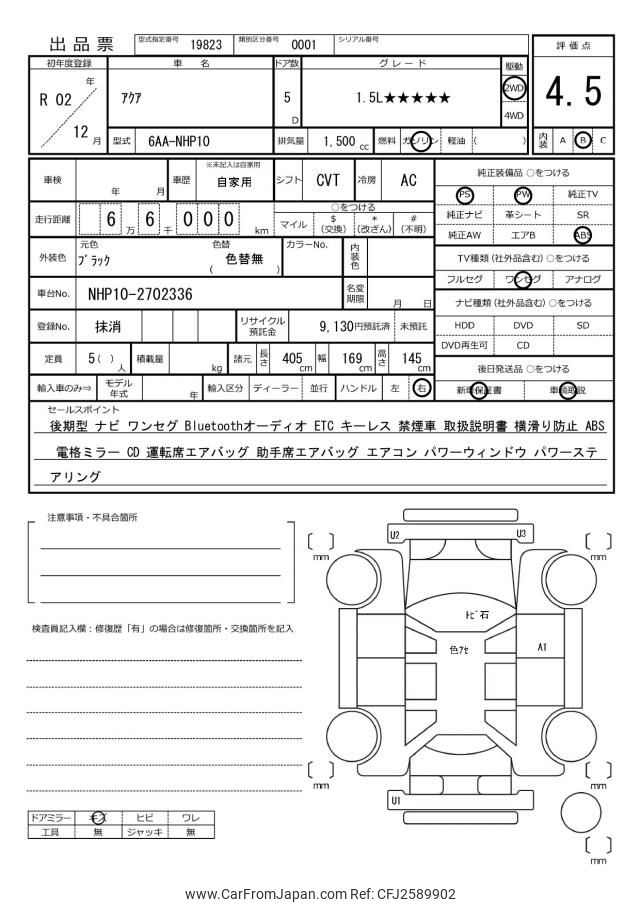 出品票 型式指定番号 19823 類別区分番号 0001 シリアル番号
評価点
4.5
内装 A B C
初年度登録 車名 ドア数 グレード 駆動
R 02 年 アクア 5 D 1.5L★★★★★ 2WD
4WD
12 月 型式 6AA-NHP10 排気量 1,500 cc 燃料 ガソリン 軽油 ( )
車検 年 月 車歴 ※未記入は自家用 自家用 シフト CVT 冷房 AC
走行距離 6 万 6 千 0 0 0 km
○をつける
マイル $ (交換) * (改ざん) # (不明)
外装色 元色 ブラック 色替 ( 色替無 ) カラーNo. 内装色
車台No. NHP10-2702336 名変期限 月 日
登録No. 抹消 リサイクル預託金 9,130円預託済 未預託
定員 5 ( ) 人 積載量 kg 諸元 長さ 405 cm 幅 169 cm 高さ 145 cm
輸入車のみ⇒ モデル年式 年 輸入区分 ディーラー 並行 ハンドル 左 右
純正装備品 ○をつける
PS PW 純正TV
純正ナビ 革シート SR
純正AW エアB ABS
TV種類 (社外品含む) ○をつける
フルセグ ワンセグ アナログ
ナビ種類 (社外品含む) ○をつける
HDD DVD SD
DVD再生可 CD
後日発送品 ○をつける
新車保証書 車輌取説
セールスポイント
後期型 ナビ ワンセグ Bluetoothオーディオ ETC キーレス 禁煙車 取扱説明書 横滑り防止 ABS
電格ミラー CD 運転席エアバッグ 助手席エアバッグ エアコン パワーウィンドウ パワーステ
アリング
注意事項・不具合箇所
検査員記入欄：修復歴「有」の場合は修復箇所・交換箇所を記入
U2 U3
[ ] mm
[ ] mm
トビ石
色アセ
A1
[ ] mm
[ ] mm
U1
[ ] mm
ドアミラー キズ ヒビ ワレ
工具 無 ジャッキ 無
www.CarFromJapan.com Ref: CFJ2589902